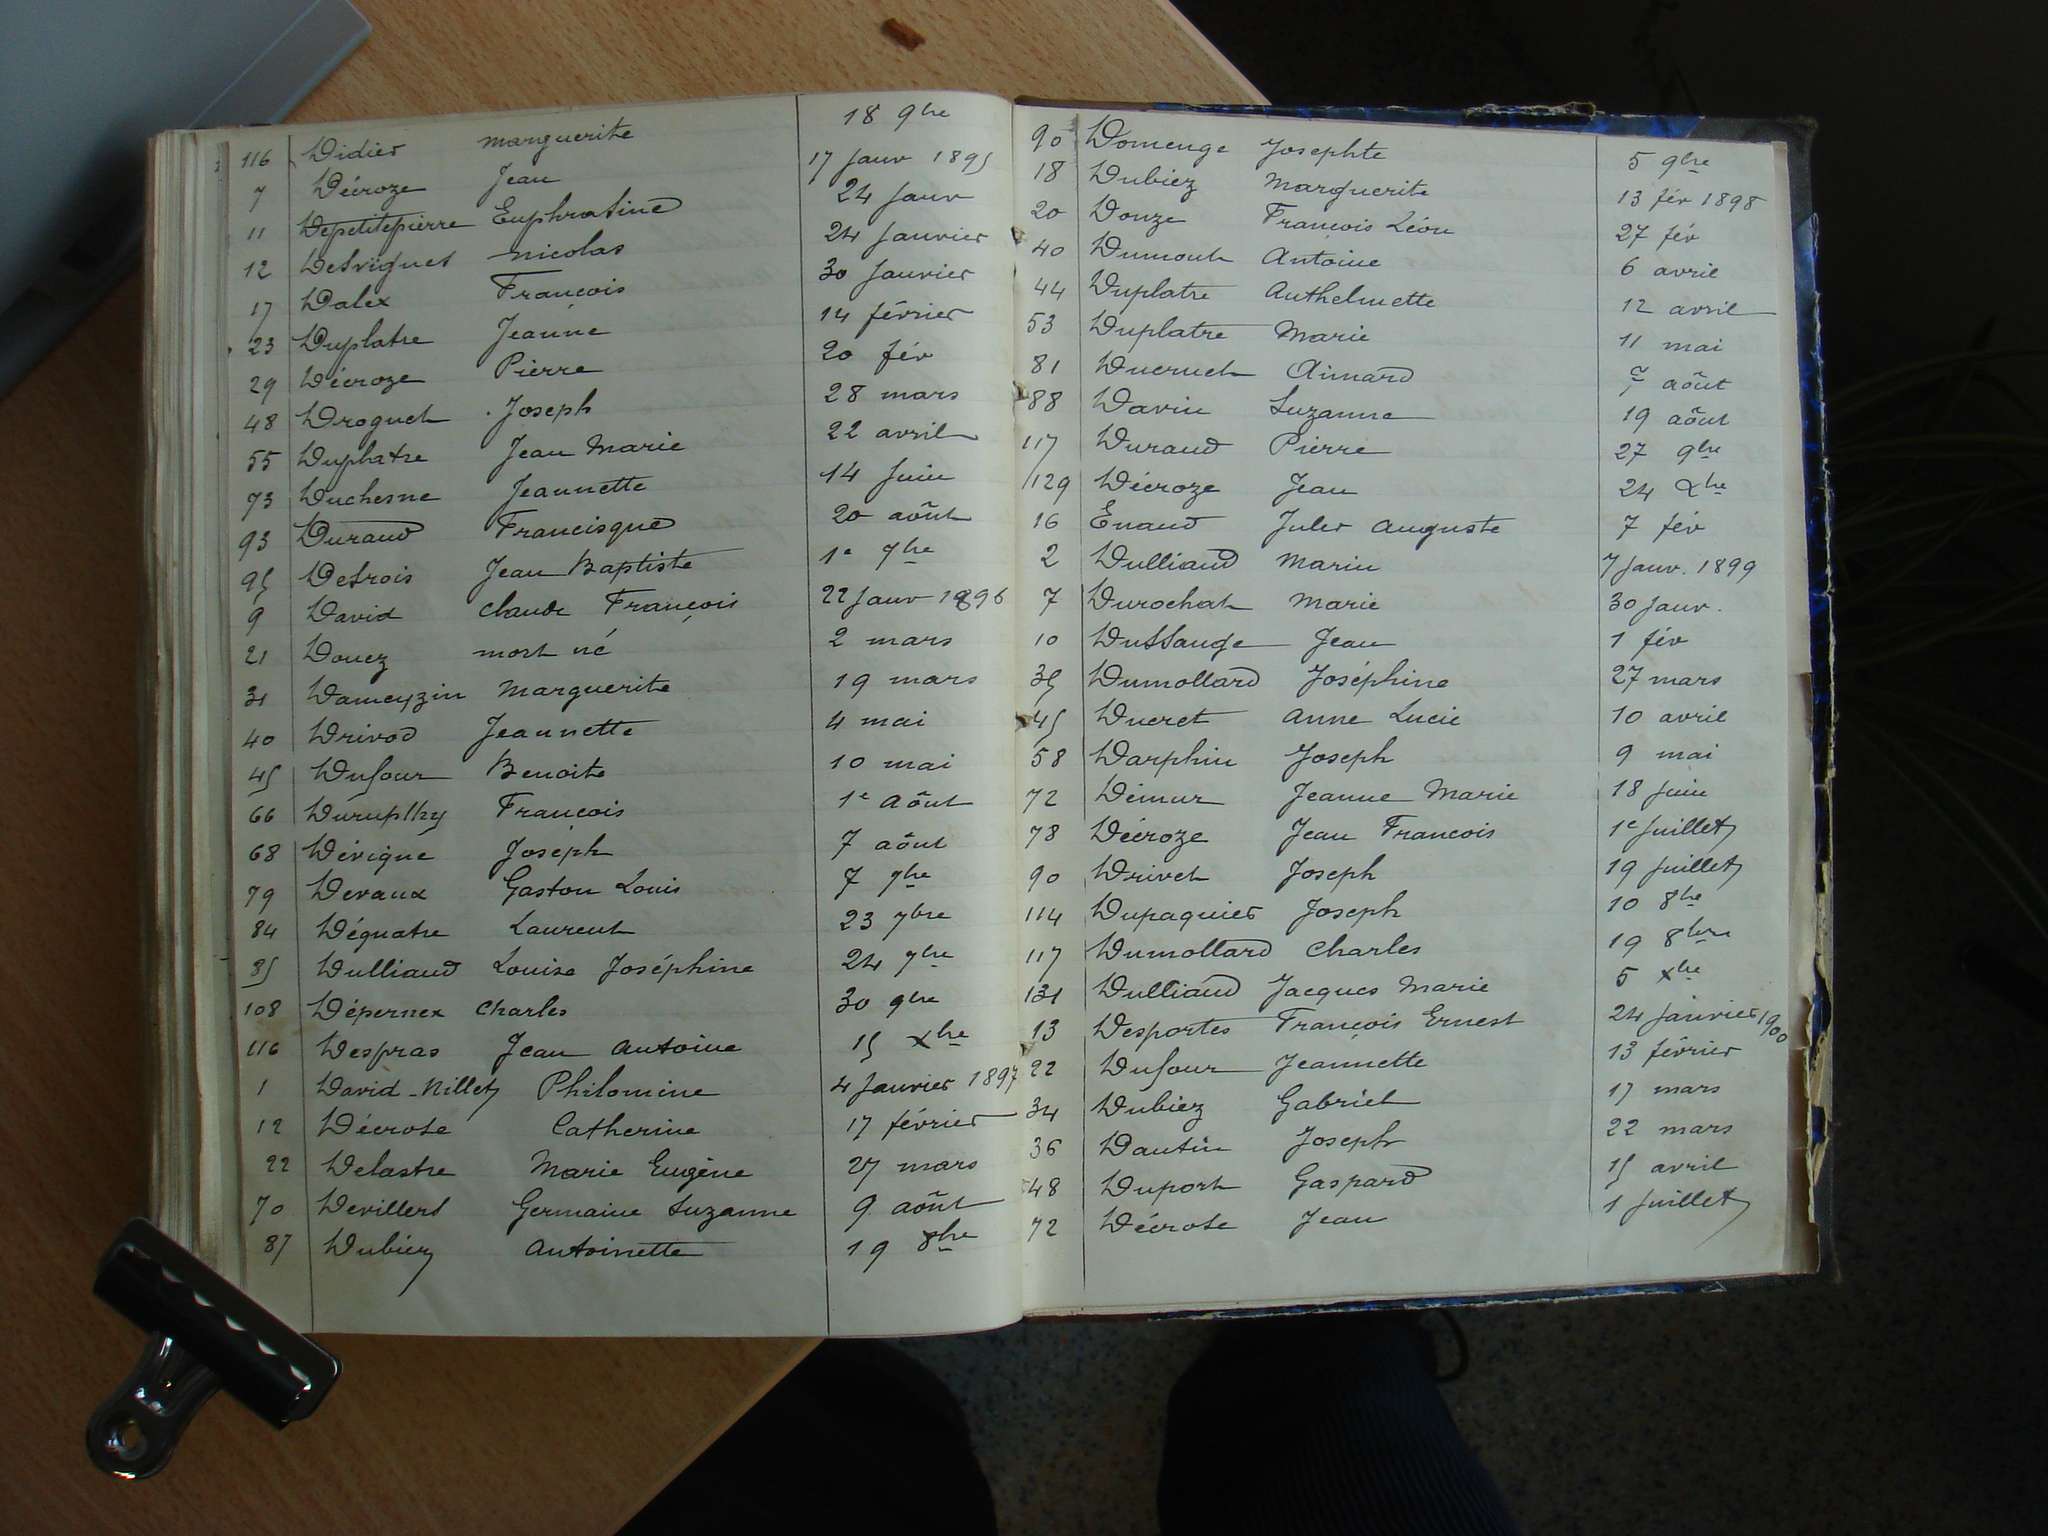 116 Didier marguerite 18 9bre
7 Décroze Jean 17 Janv 1895
11 Depetitepierre Euphrasine 24 Janv
12 Desvignes nicolas 24 Janvier
17 Dalex François 30 Janvier
23 Duplatre Jeanne 14 février
29 Décroze Pierre 20 fév
48 Droguet Joseph 28 mars
55 Duplatre Jean Marie 22 avril
73 Duchesne Jeannette 14 Juin
93 Durand Francisque 20 août
95 Defrois Jean Baptiste 1e 7bre
9 David Claude François 22 Janv 1896
21 Douez mort né 2 mars
31 Dameyzin Marguerite 19 mars
40 Drivod Jeannette 4 mai
45 Dufour Benoite 10 mai
66 François 1e Aôut
68 Dévigne Joseph 7 aôut
79 Devaux Gaston Louis 7 7bre
84 Déquatre Laurent 23 7bre
85 Dulliand Louise Joséphine 24 7bre
108 Dépernex Charles 30 9bre
116 Despras Jean Antoine 15 Xbre
1 David-Nillet Philomine 4 Janvier 1897
12 Décrose Catherine 17 février
22 Delastre Marie Eugène 27 mars
70 Devillers Germaine Suzanne 9 août
87 Dubiez Antoinette 19 8bre
90 Domenge Josephte 5 9bre
18 Dubiez Marguerite 13 fév 1898
20 Douze François Léon 27 fév
40 Dumont Antoine 6 avril
44 Duplatre Anthelmette 12 avril
53 Duplatre Marie 11 mai
81 Ducruet Aimard août
88 Davin Suzanne 19 aôut
117 Durand Pierre 27 9bre
129 Décroze Jean 24 Xbre
16 Enand Jules Auguste 7 fév
2 Dulliand Marin 7 Janv. 1899
7 Durochat Marie 30 Janv.
10 Dussauge Jean 1 fév
35 Dumollard Joséphine 27 mars
45 Ducret Anne Lucie 10 avril
58 Darphin Joseph 9 mai
72 Démur Jeanne Marie 18 Juin
78 Décroze Jean François 1e Juillet
90 Drivet Joseph 19 Juillet
114 Dupaquier Joseph 10 8bre
117 Dumollard Charles 19 8bre
131 Dulliand Jacques Marie 5 Xbre
13 Desportes François Ernest 24 Janvier 1900
22 Dufour Jeannette 13 février
34 Dubiez Gabriel 17 mars
36 Dantin Joseph 22 mars
48 Duport Gaspard 15 avril
72 Décrose Jean 1 Juillet